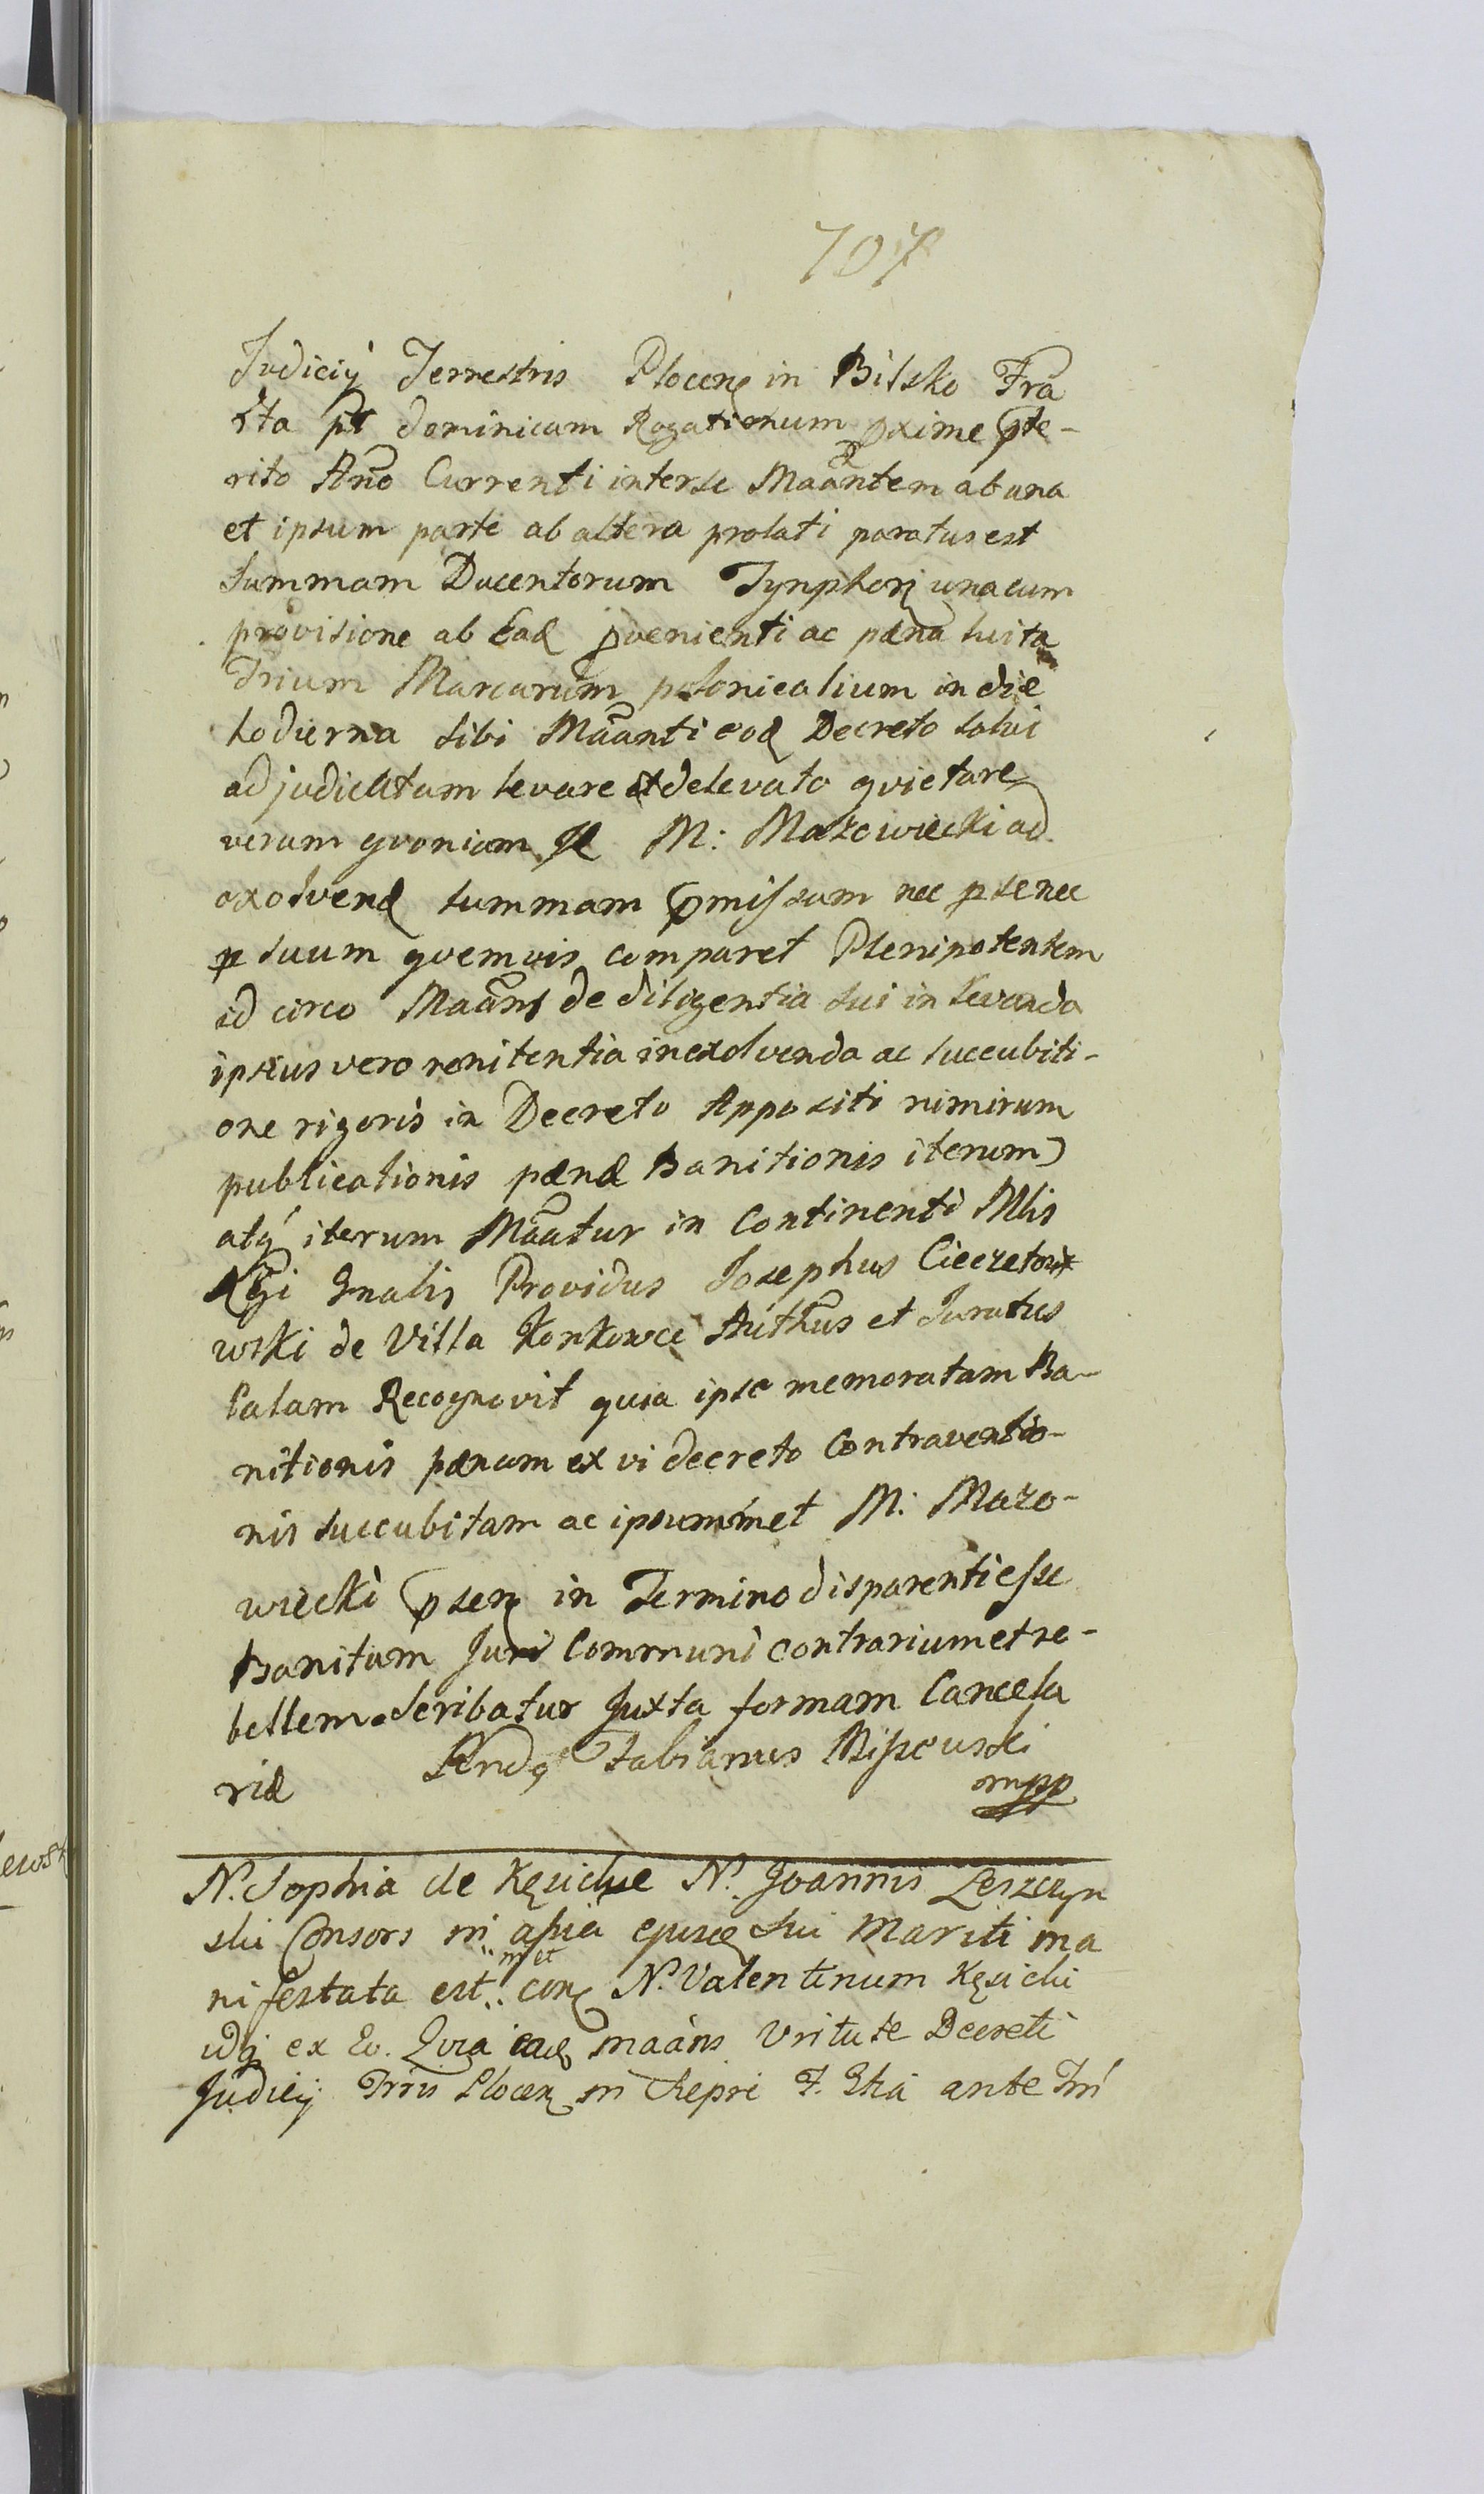 707
Judicij Terrestris Plocen in Bilsko Fra
sta pt dominicam Rogationum pxime pte-
rito Ano Currenti interse Maantem ab una
et ipsum parte ab altera prolati paratus est
summam Ducentorum Tynphor una cum
provisione ab Ead pvenienti ac pæna luita
Trium Marcarum polonicalium in die
hodierna sibi Maanti eod Decreto solvi
adjudicatam levare et de levato quietare
verum quoniam M: Mazowiecki ad
exolvend summam pmissam nec p se nec
p suum quemvis comparet Plenipotentem
id circo Maans de diligentia sui in levanda
ipsius vero renitentia in exolvenda ac succubiti-
one rigoris in Decreto Appositi nimirum
publicationis pænæ Banitionis iterum
atq iterum Maatur in Continenti Mlis
Rgi Gnalis Providus Josephus Cieczetow
wski de Villa Konkowce Authus et Juratus
Palam Recognovit quia ipse memoratam Ba-
nitionis pænam ex vi decreto Contraventio-
nis succubitam ac ipsummet M: Mazo-
wiecki psen in Termino disparenti esse
Banitum Juri Communi contrarium et re-
bellem. Scribatur Juxta formam Cancela
riæ Fabianus
mpp
N. Sophia de Kęsickie N. Joannis Leszczyn
ski Consors in asia ejusd sui Mariti ma
nifestata est met con N. Valentinum Kęsicki
idq ex Eo. Quia ead maans Vritute Decreti
Judicij Trris Plocen in Repri F. Gta ante Fm